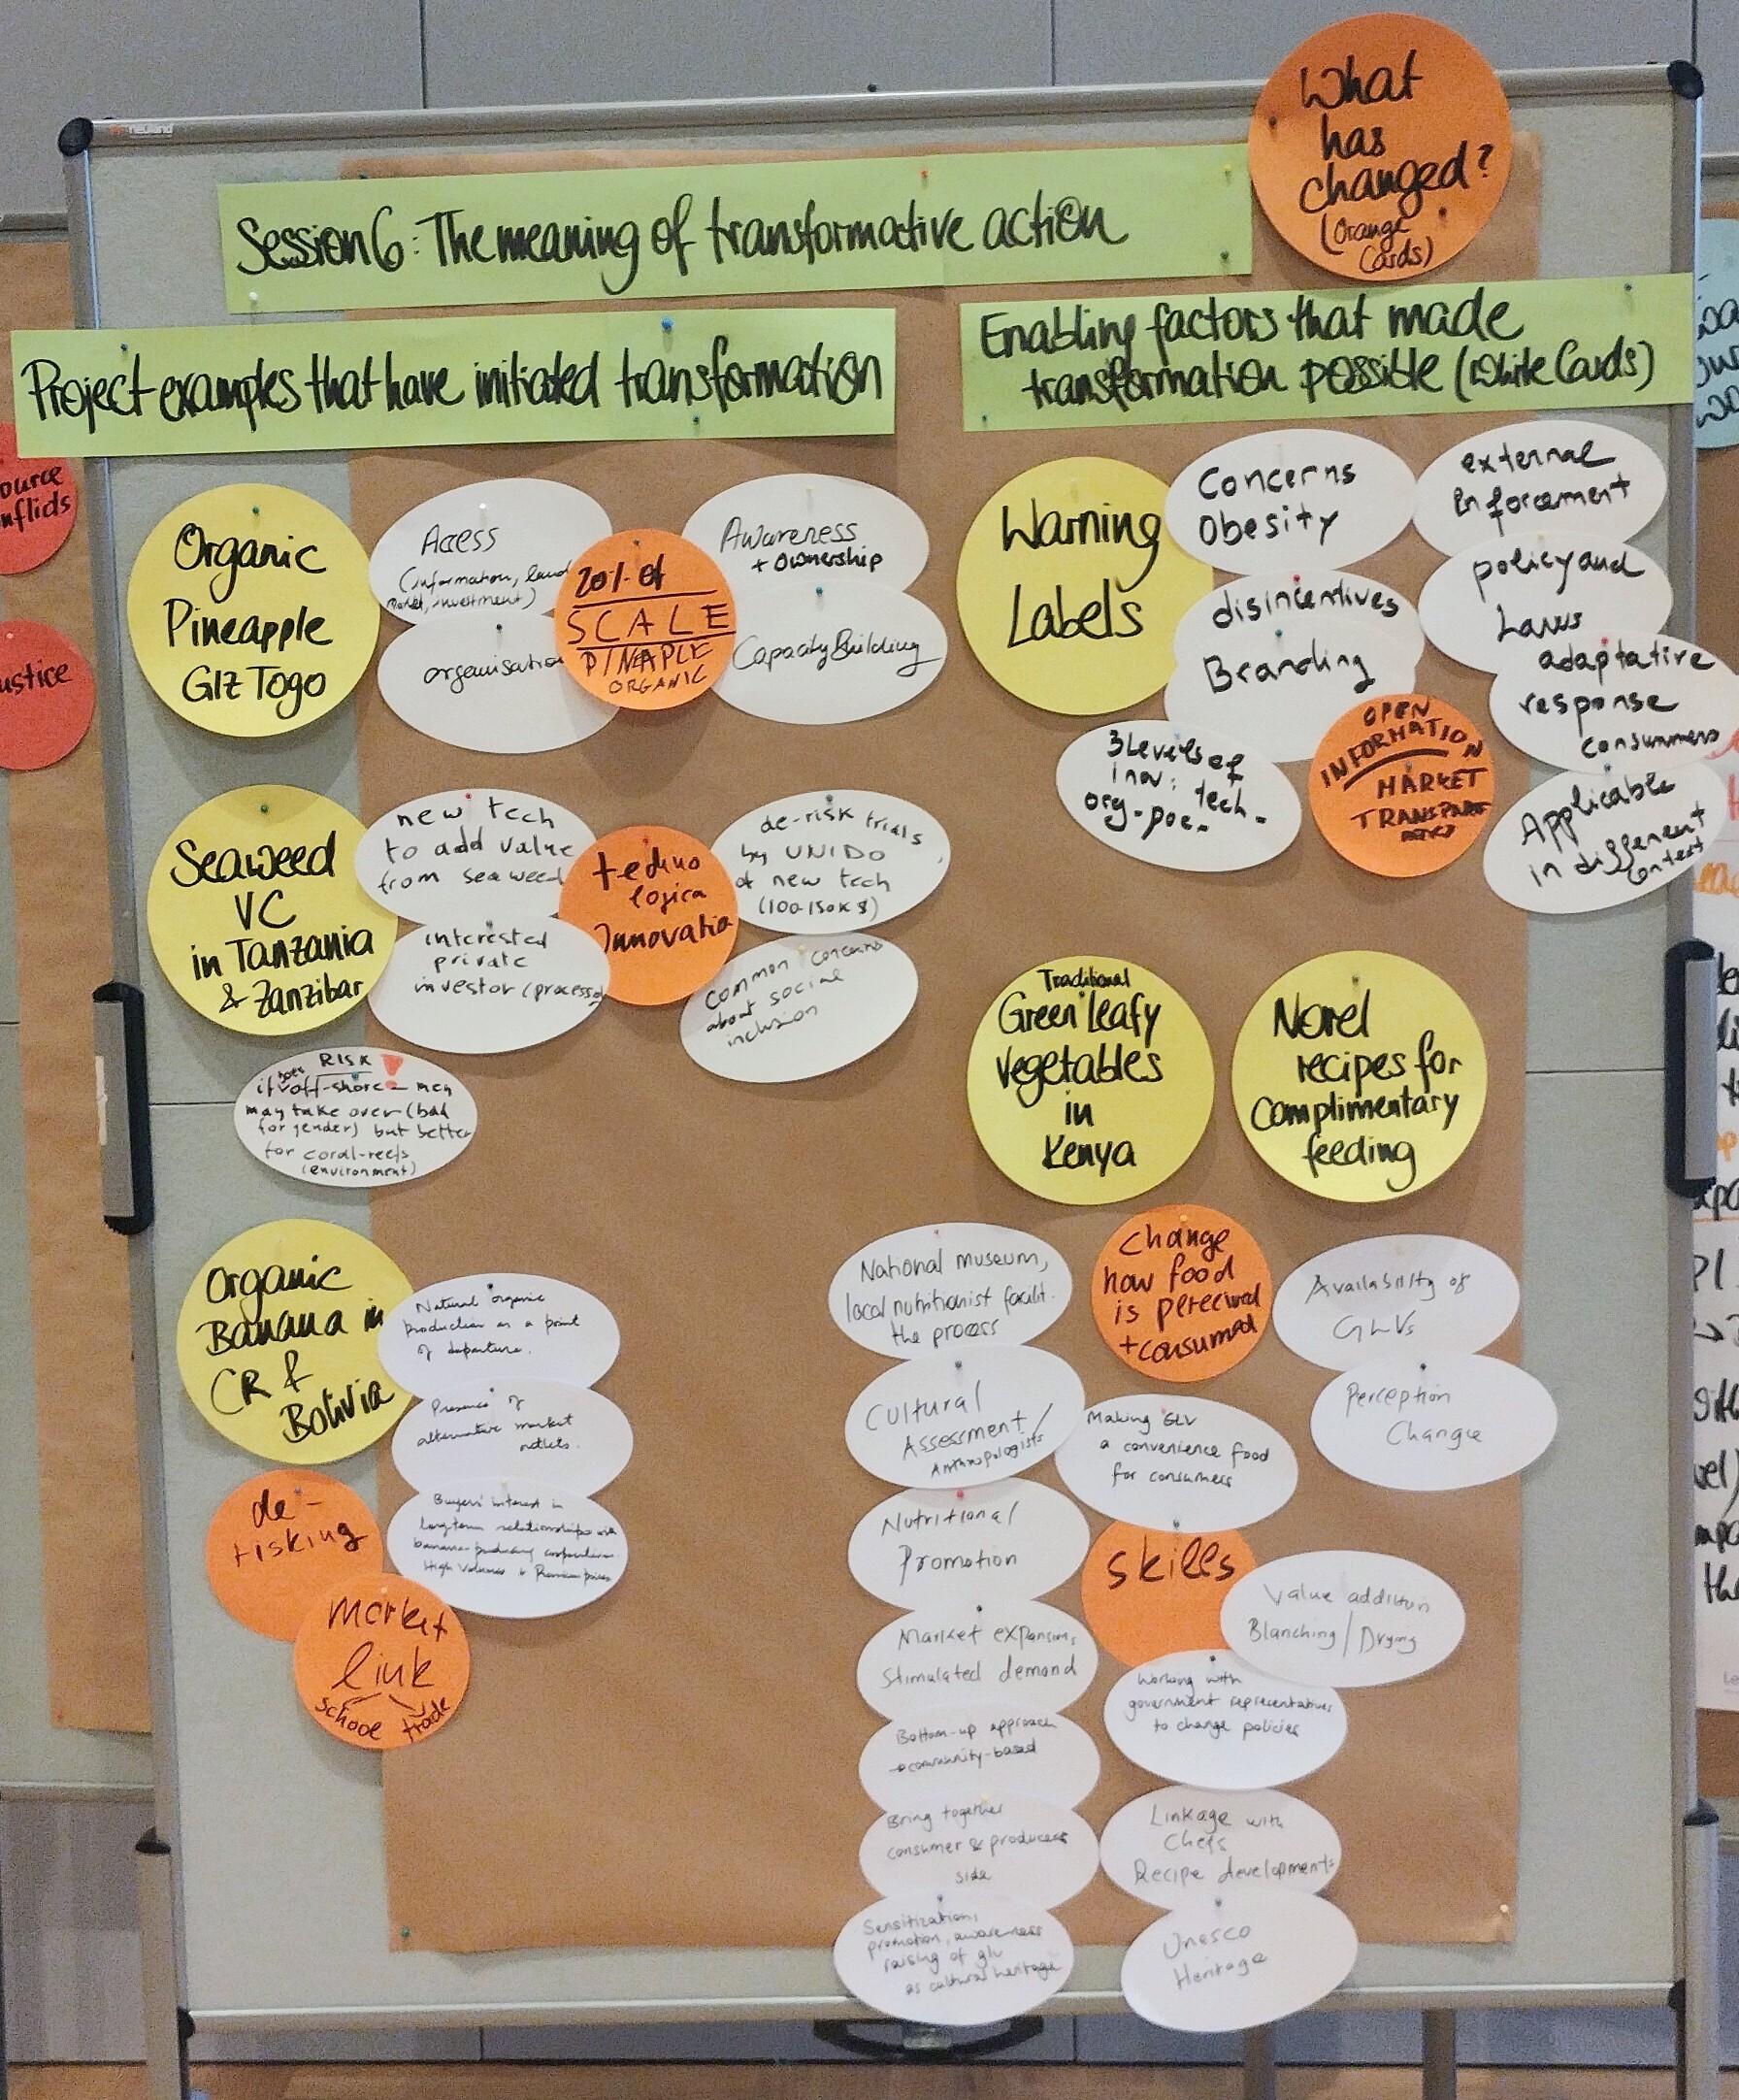 What
has
changed?
(Orange
Cards)
Session 6: The meaning of transformative action
Project examples that have initiated transformation
Enabling factors that made
transformation possible (white Cards)
Organic
Pineapple
GIZ Togo
Access
(information, land
market, investment)
organisation
20% of
SCALE
PINEAPLE
ORGANIC
Awareness
+ Ownership
Capacity Building
Seaweed
VC
in Tanzania
& Zanzibar
new tech
to add value
from seaweed
interested
private
investor (process
techno
logica
Innovatio
de-risk trials
by UNIDO
of new tech
(100-150K $)
Common concerns
about social
inclusion
RISK !
if goes off-shore - men
may take over (bad
for gender) but better
for coral-reefs
(environment)
Organic
Banana in
CR &
Bolivia
Natural organic
production as a point
of departure.
Presence of
alternative market
outlets.
Buyers' interest in
long term relationships with
banana-producing cooperatives.
High Volumes + Premium prices
de-
risking
market
link
school trade
Warning
Labels
Concerns
Obesity
external
Enforcement
disincentives
Branding
policy and
Laws
adaptative
response
consummers
3 Levels of
inov: tech-
org-poe-
OPEN
INFORMATION
MARKET
TRANSPARE
Applicable
in different
Context
Traditional
Green Leafy
Vegetables
in
Kenya
Novel
recipes for
Complimentary
feeding
National museum,
local nutritionist facilit.
the process
Change
how food
is perceived
+ consumed
Availability of
GLVs
Cultural
Assessment/
Anthropologists
Making GLV
a convenience food
for consumers
Perception
Change
Nutritional
Promotion
Skills
Value addition
Blanching / Drying
Market expansion,
Stimulated demand
Working with
government representatives
to change policies
Bottom-up approach
→ community-based
Bring together
consumer & producers
side
Linkage with
Chefs
Recipe developments
Sensitization,
promotion, awareness
raising of glv
as cultural heritage
Unesco
Heritage
ource
nflicts
ustice